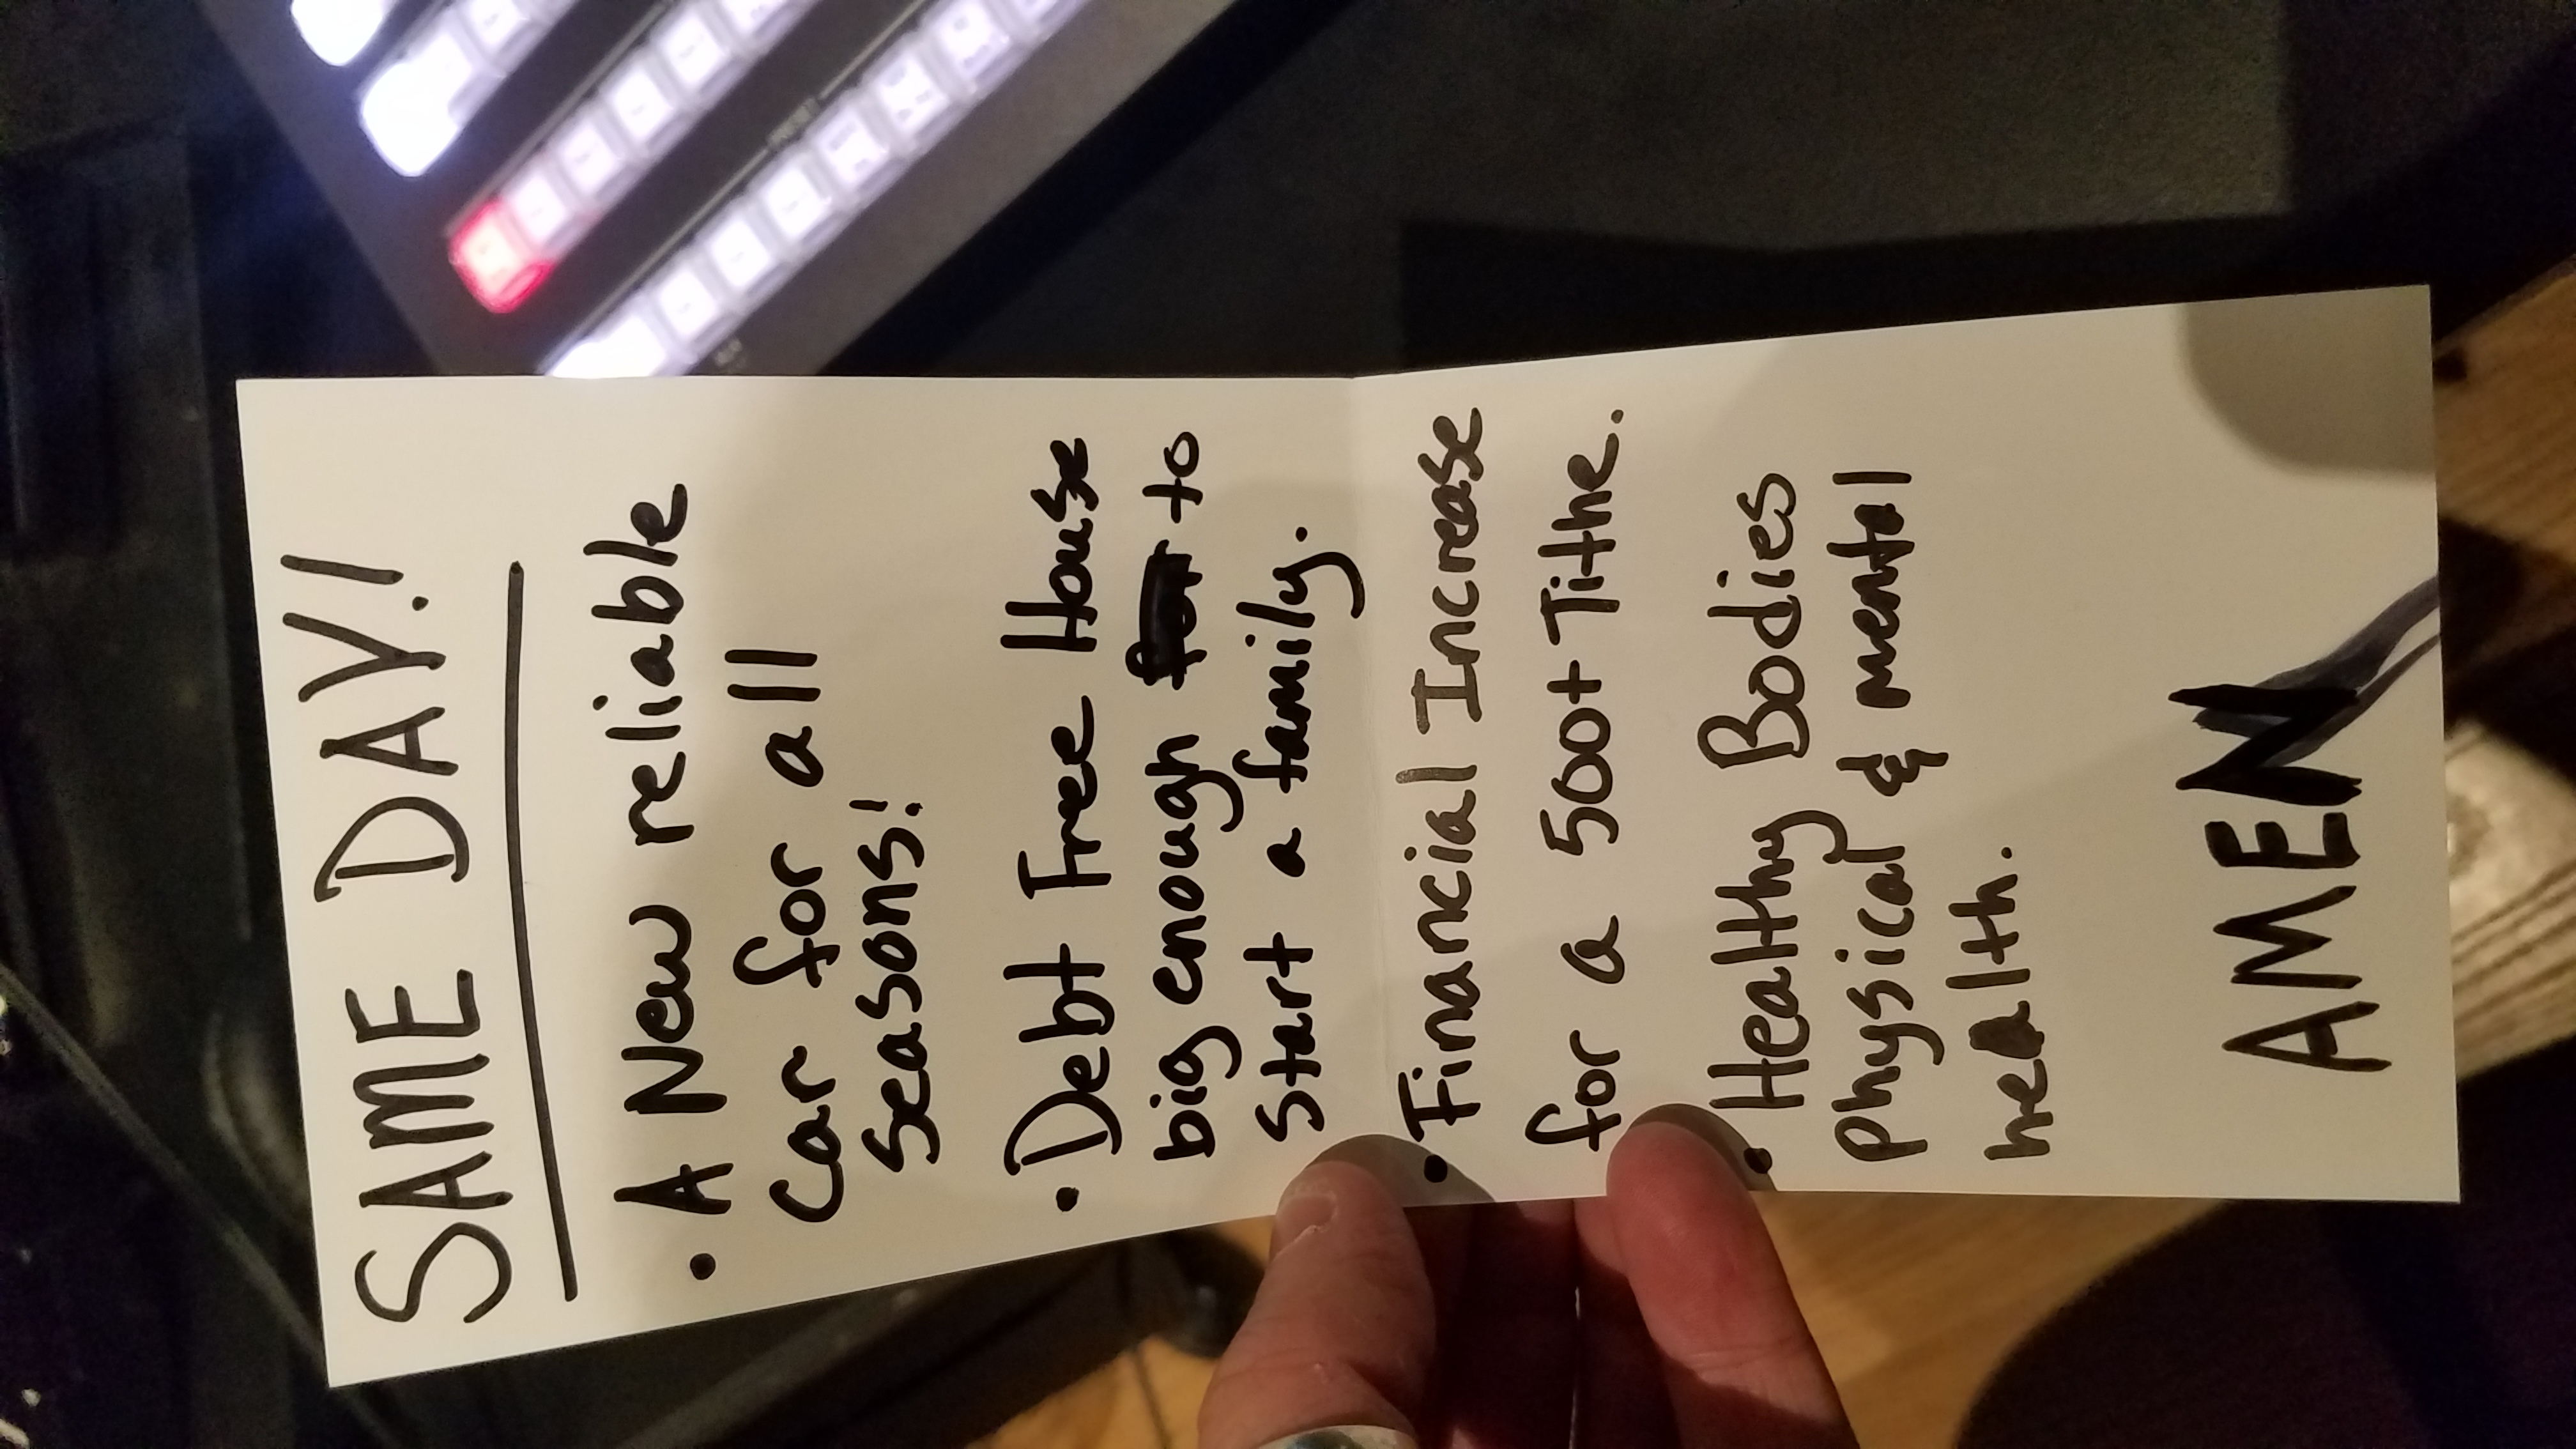 SAME DAY!
• A New reliable
Car for all
seasons!
• Debt Free House
big enough to
start a family.
• Financial Increase
for a 500+ Tithe.
• Healthy Bodies
physical & mental
health.
AMEN